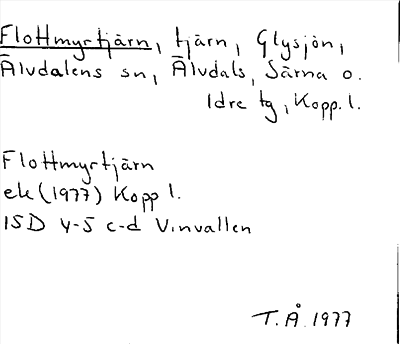 Flottmyrtjärn, tjärn, Glysjön,
Älvdalens sn, Älvdals, Särna o.
Idre tg, Kopp. l.
Flottmyrtjärn
ek (1977) Kopp l.
15D 4-5 c-d Vinvallen
T.Å. 1977